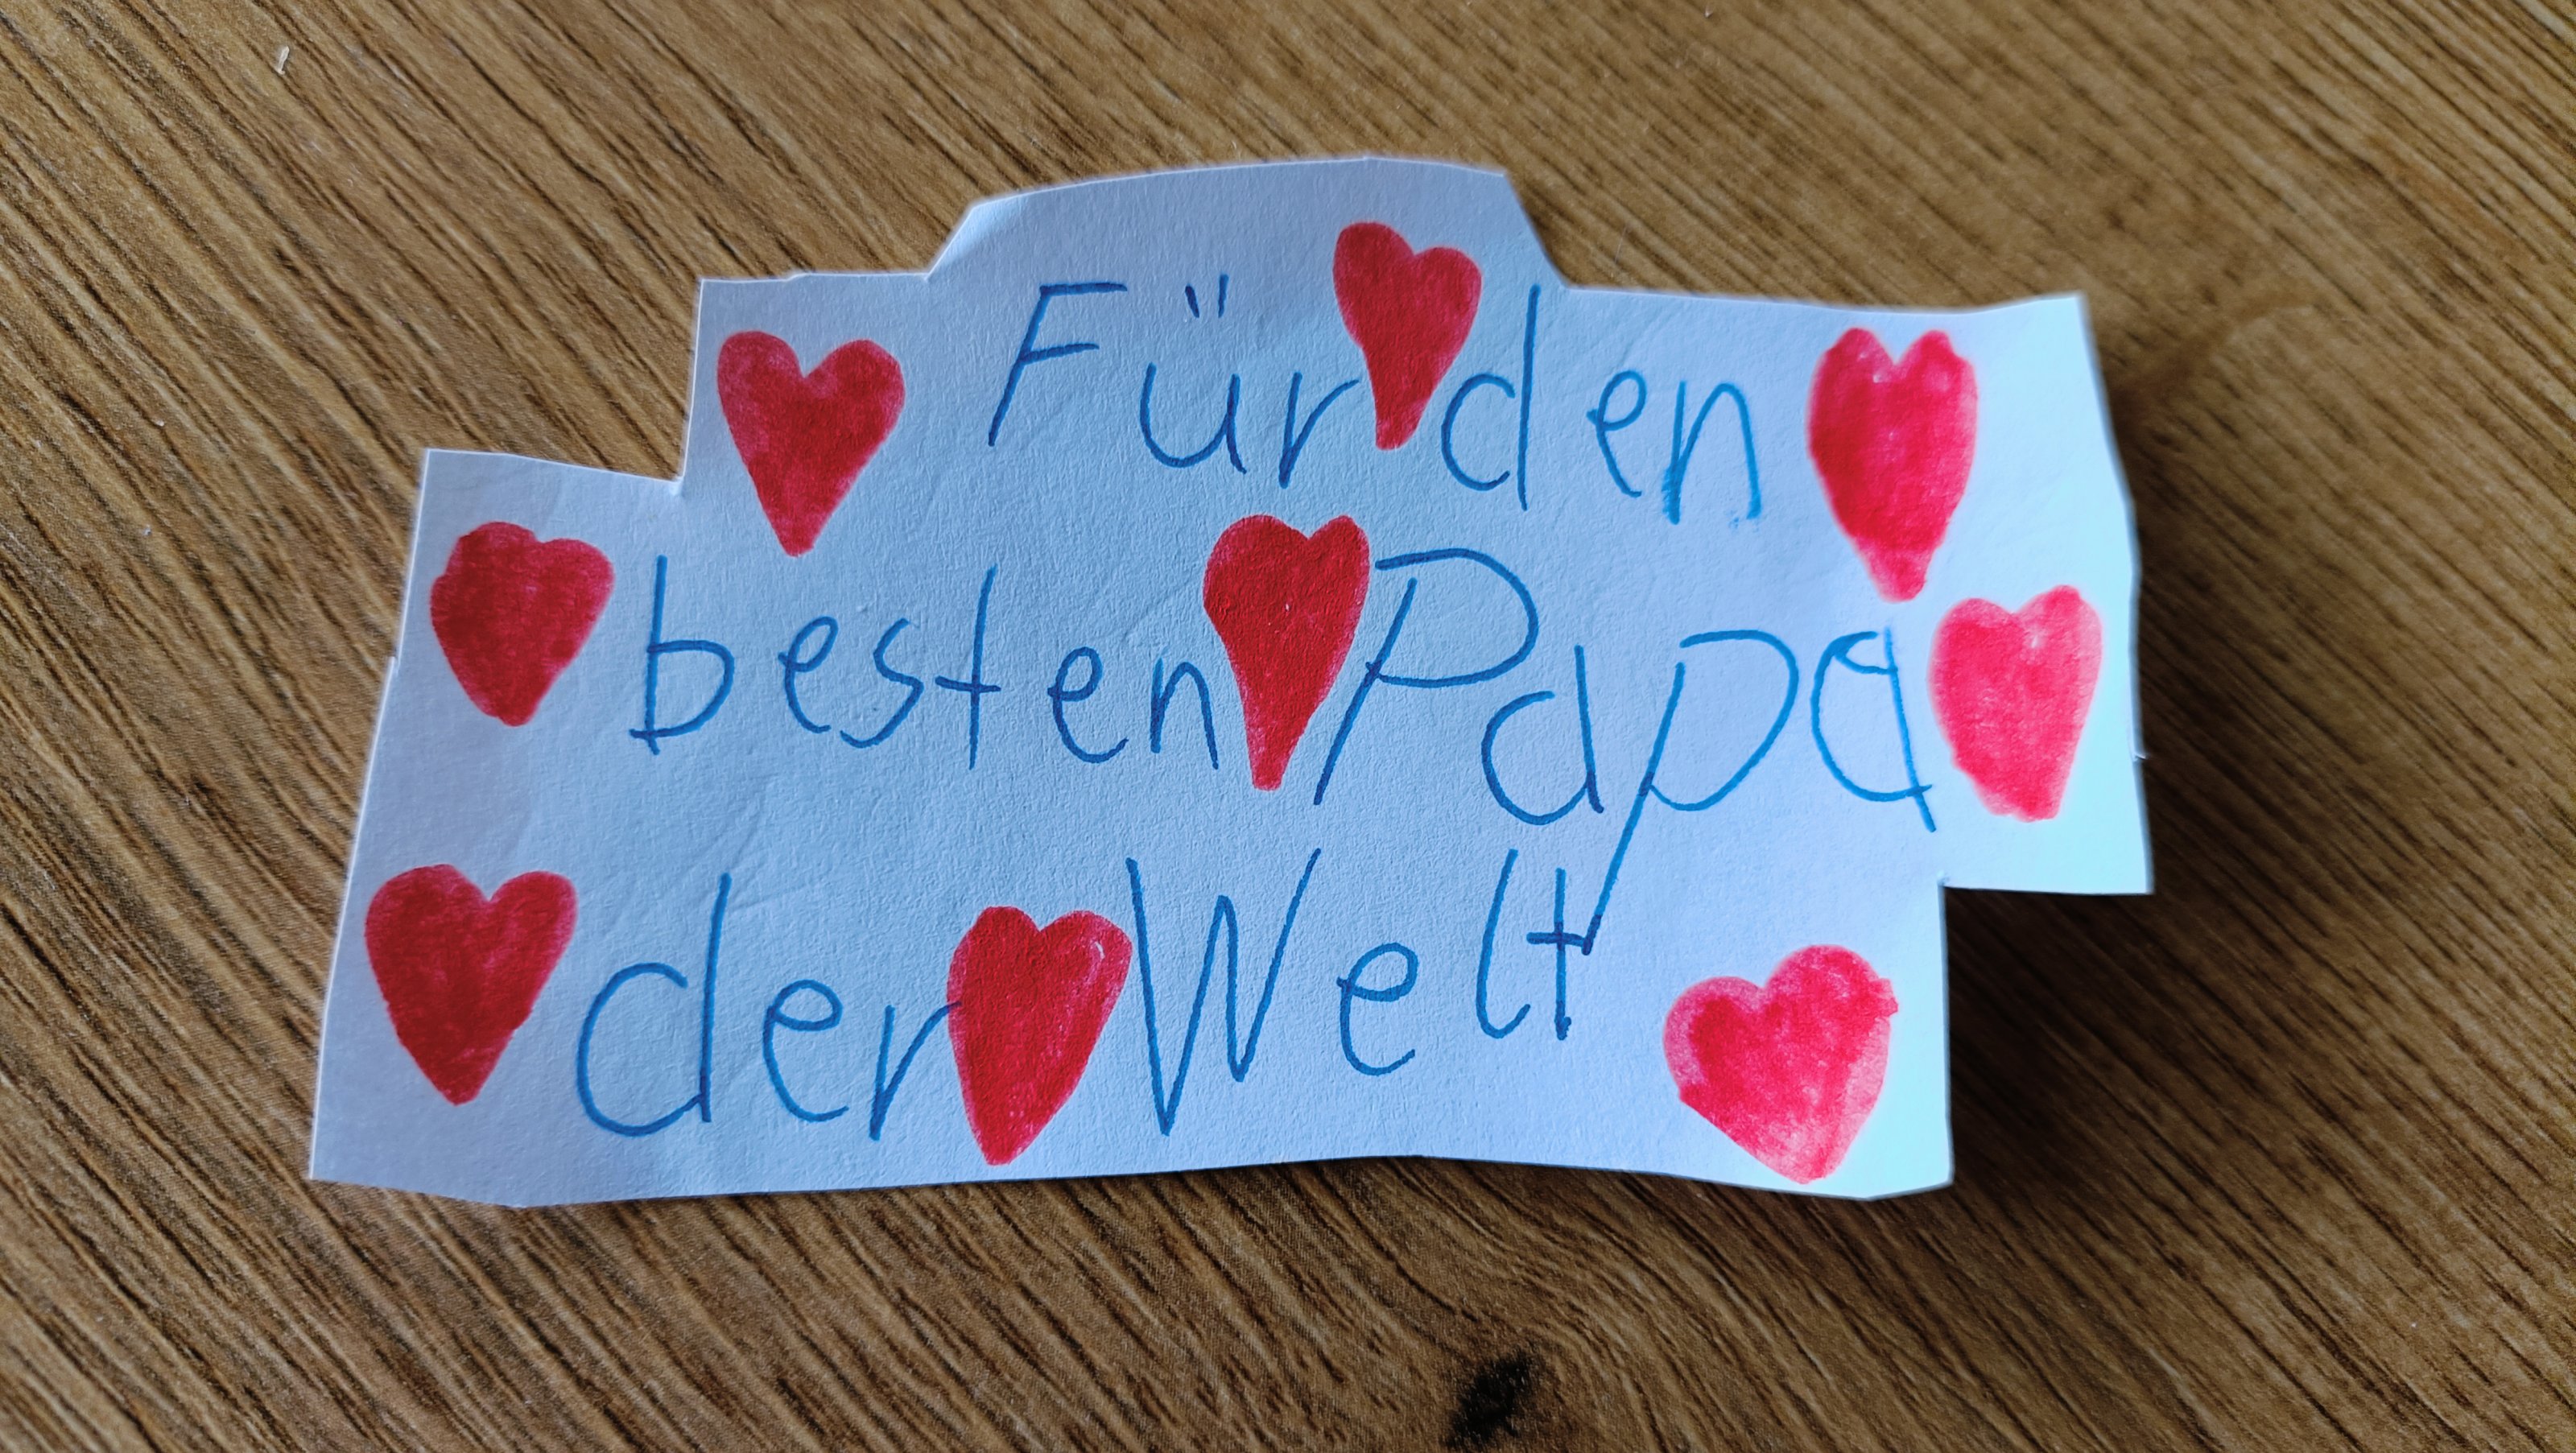 Für den
besten Papa
der Welt